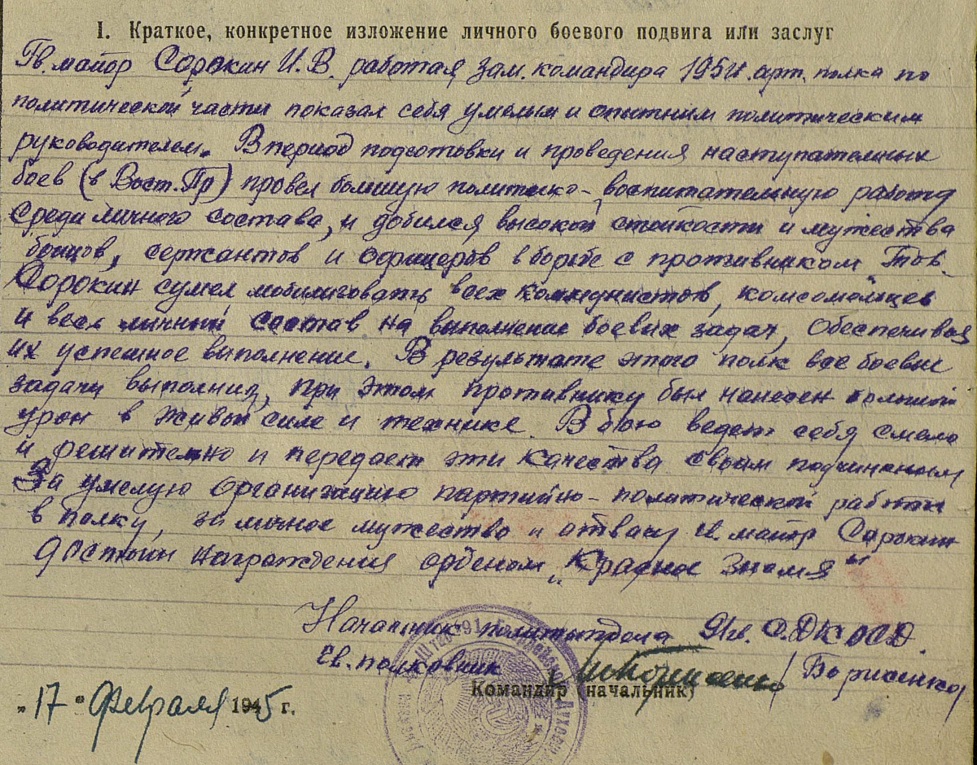 I. Краткое, конкретное изложение личного боевого подвига или заслуг
Гв. майор Сорокин И.В. работая зам. командира 195 арт. полка по
политической части показал себя умелым и опытным политическим
руководителем. В период подготовки и проведения наступательных
боев (в Вост. Пр) провел большую политико-воспитательную работу
среди личного состава, и добился высокой стойкости и мужества
бойцов, сержантов и офицеров в борьбе с противником. Тов.
Сорокин сумел мобилизовать всех коммунистов, комсомольцев
и весь личный состав на выполнение боевых задач, обеспечивая
их успешное выполнение. В результате этого полк все боевые
задачи выполнил, при этом противнику был нанесен большой
урон в живой силе и технике. В бою ведет себя смело
и решительно и передает эти качества своим подчиненным
За умелую организацию партийно-политической работы
в полку, за личное мужество и отвагу майор Сорокин
достоин награждения орденом „Красное Знамя“
Начальник политотдела 91 гв. С.ДКОСД.
Гв. полковник / Борисенко/
Командир (начальник)
„17“ Февраля 1945 г.